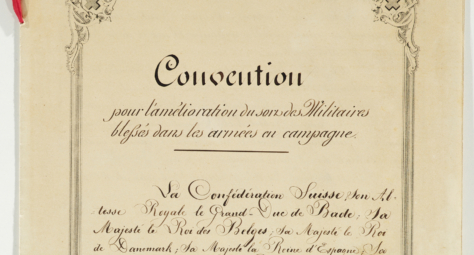 Convention
pour l'amélioration du sort des Militaires
blessés dans les armées en campagne.
La Confédération Suisse; Son Al-
tesse Royale le Grand-Duc de Bade; Sa
Majesté le Roi des Belges; Sa Majesté le Roi
de Danemark; Sa Majesté la Reine d'Espagne; Sa